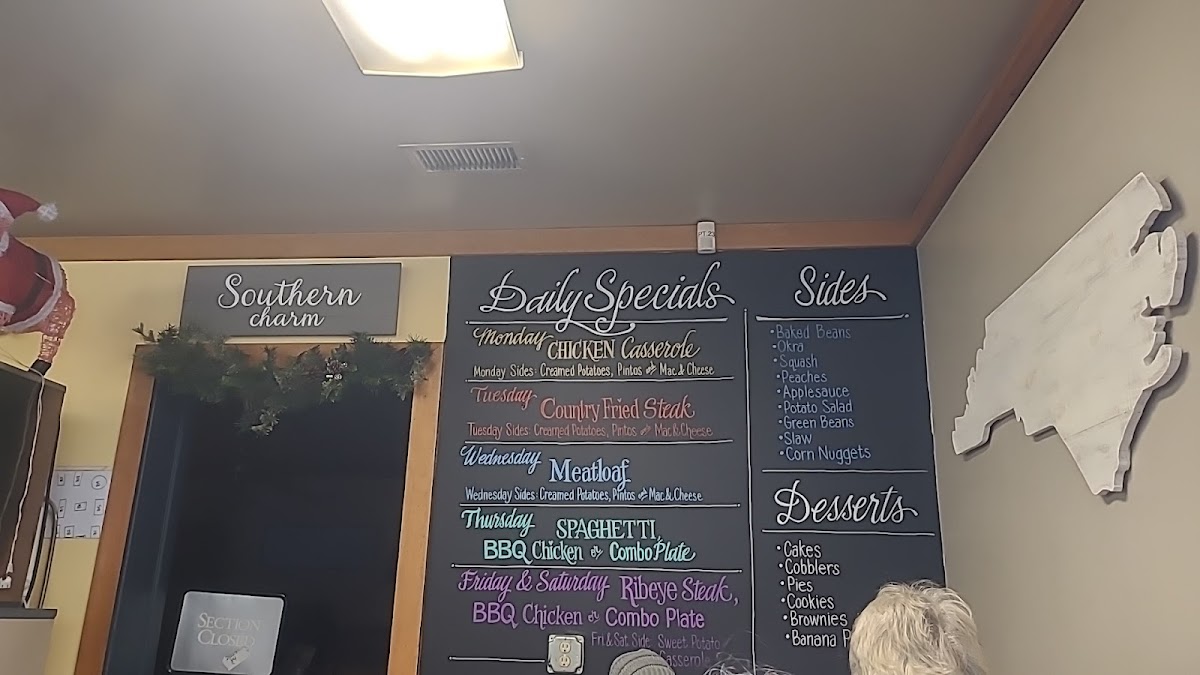 Southern
charm
SECTION
CLOSED
Daily Specials
Monday
CHICKEN Casserole
Monday Sides: Creamed Potatoes, Pintos and Mac & Cheese
Tuesday
Country Fried Steak
Tuesday Sides: Creamed Potatoes, Pintos and Mac & Cheese
Wednesday
Meatloaf
Wednesday Sides: Creamed Potatoes, Pintos and Mac & Cheese
Thursday
SPAGHETTI,
BBQ Chicken or Combo Plate
Friday & Saturday Ribeye Steak,
BBQ Chicken or Combo Plate
Fri & Sat Side Sweet Potato
Casserole
Sides
•Baked Beans
-Okra
•Squash
•Peaches
•Applesauce
•Potato Salad
•Green Beans
•Slaw
•Corn Nuggets
Desserts
•Cakes
•Cobblers
•Pies
•Cookies
•Brownies
•Banana P